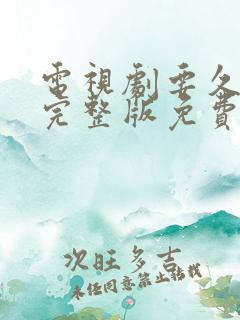 電視劇要久
完整版免費
次旺多吉
未经同意禁止转载